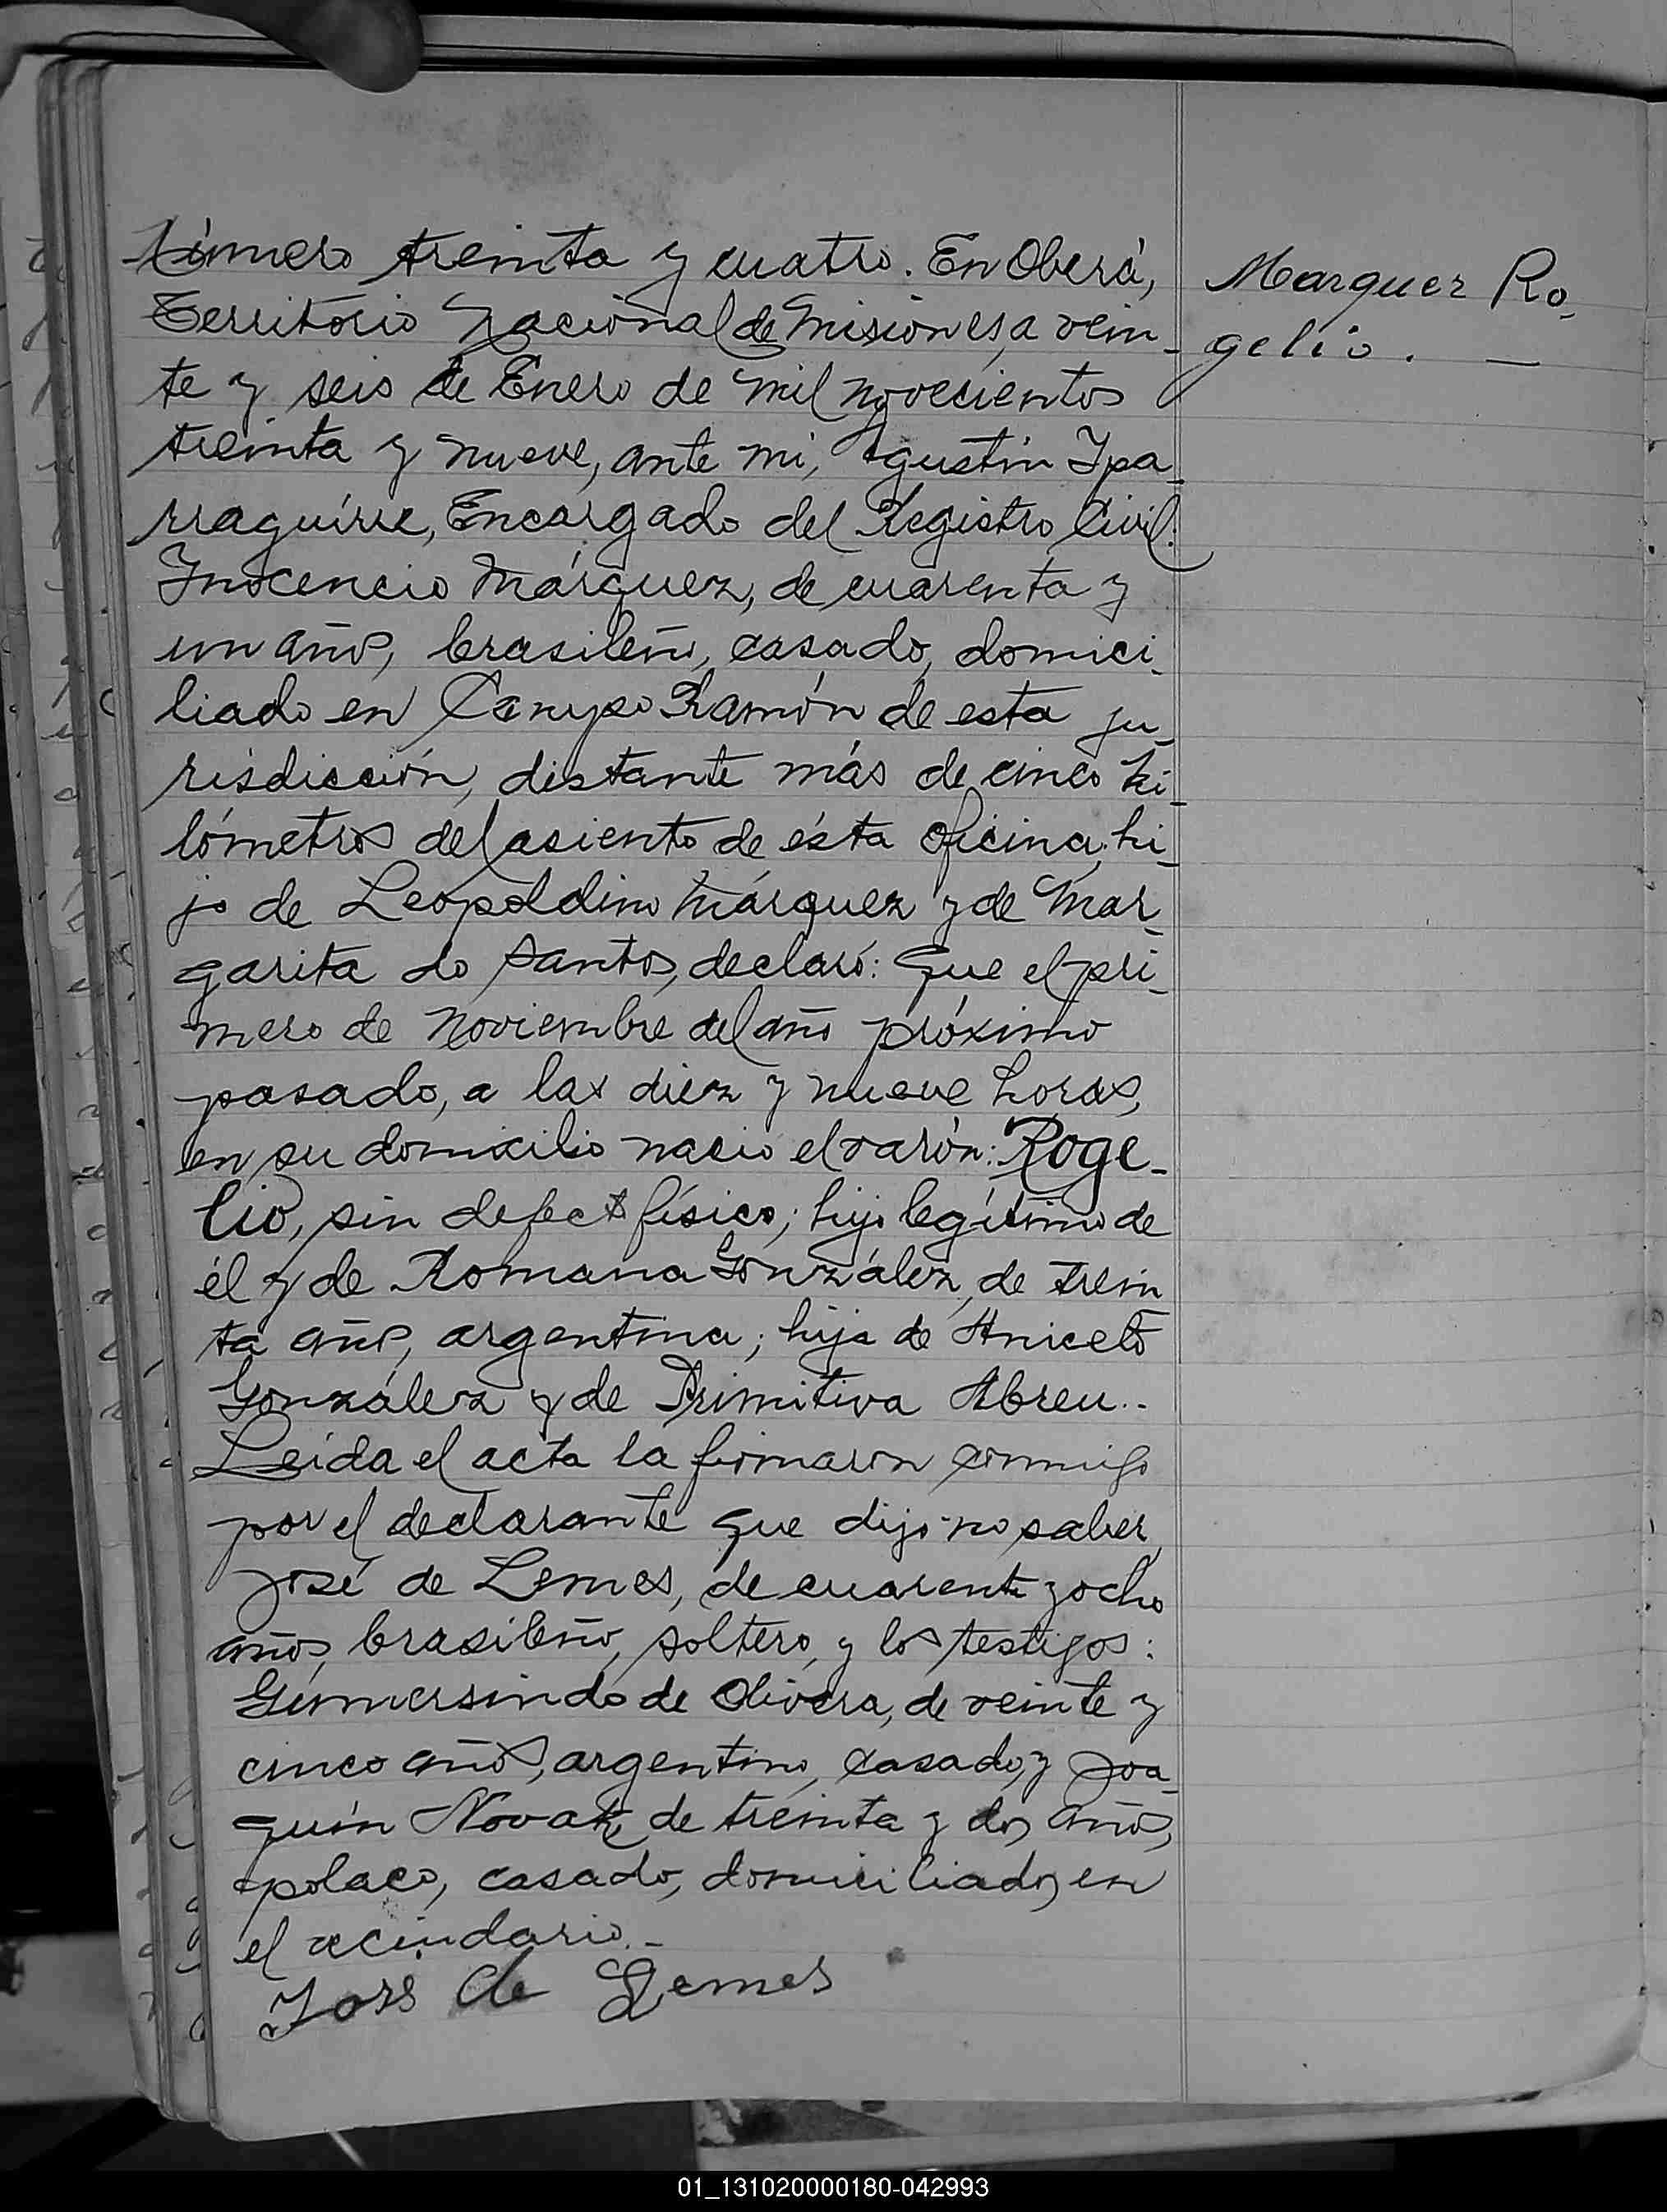 Número treinta y cuatro. En Oberá,
Territorio Nacional de Misiones, a vein-
te y seis de Enero de mil novecientos
treinta y nueve, ante mi, Agustín Ipa-
rraguirre, Encargado del Registro Civil:
Inocencio Márquez, de cuarenta y
un años, brasileño, casado, domici-
liado en Campo Ramón de esta ju-
risdicción, distante más de cinco ki-
lómetros del asiento de ésta oficina, hi-
jo de Leopoldino Márquez y de Mar-
garita do Santos, declaró: Que el pri-
mero de Noviembre del año próximo
pasado, a las diez y nueve horas,
en su domicilio nació el varón: Roge-
lio, sin defecto físico; hijo legítimo de
él y de Romana González, de trein
ta años, argentina; hija de Aniceto
González y de Primitiva Abreu.-
Leída el acta la firmaron conmigo
por el declarante que dijo no saber,
José de Lemes, de cuarenta y ocho
años, brasileño, soltero, y los testigos:
Gumersindo de Olivera, de veinte y
cinco años, argentino, casado, y Joa-
quín Novak, de treinta y dos años,
polaco, casado, domiciliados en
el vecindario.-
José de Lemes
Marquez Ro-
gelio. —
01_131020000180-042993